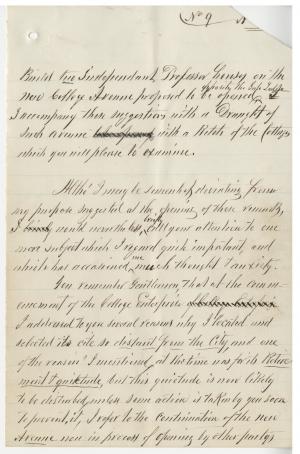 (No 9
Build two Independant Professor Houses on the
new College Avenue proposed to be opened
opposite the
I accompany these suggestions with a Draught of
such avenue with a Sketch of the Cottages
which you will please to examine.
Altho' I may be somewhat deviating from
my purpose suggested at the opening of these remarks,
I would nevertheless, briefly call your attention to one
more subject which I regard quite important and
which has occasioned me much thought & anxiety.
You remember Gentlemen, that at the com-
mencement of the College Enterprise
I addressed to you several reasons why I located and
selected its cite so distant from the City and one
of the reasons I mentioned, at the time was for its Retire-
ment & quietude, but this quietude is now likely
to be destroyed, unless some action is taken by you soon
to prevent it, I refer to the continuation of the new
Avenue now in process of opening by other party's